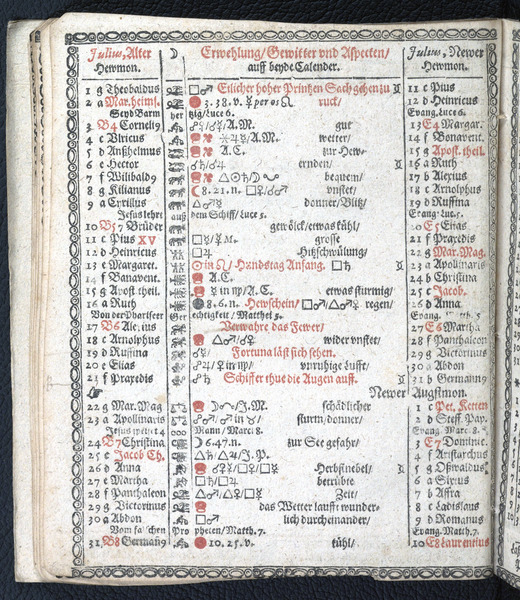 Julius, Alter ☽ Erwehlung/ Gewitter vnd Aspecten/ Julius, Newer
Hewmon. auff beyde Calender. Hewmon.
1 g Theobaldus □♂ Etlicher hoher Printzen Sach gehen zu 11 c Pius
2 a Mar. heims. 3.38.v. ruck/ 12 d Heinricus
Seyd Barm her tzig/Luce 6. Evang. Luce 6.
3 B4 Cornelig A.M. gut 13 E4 Margar.
4 c Vlricus A.M. wetter/ 14 f Bonavent.
5 d Anshelmus A.C. zur Hew- 15 g Apost. theil.
6 e Hector ernden/ 16 a Ruth
7 f Wilibald bequem/ 17 b Alexius
8 g Kilianus 8.21.n. vnstet/ 18 c Arnolphus
9 a Cyrillus donner/Blitz/ 19 d Ruffina
Jesus lehrt auß dem Schiff/ Luce 5. Evang. Luc. 5.
10 B5 7 Brüder gewölck/etwas kühl/ 20 E5 Elias
11 c Pius XV grosse 21 f Praxedis
12 d Heinricus □♃ Hitz schwülung/ 22 g Mar. Mag.
13 e Margaret. ☉ in ♌/ Hundstag Anfang. □♄ 23 a Apollinaris
14 f Banavent. A.C. 24 b Christina
15 g Apost theil. A.C. etwas stürmig/ 25 c Jacob.
16 a Ruth 8.6.n. Hewschein/ regen/ 26 d Anna
Von der Phariseer Ger echtigkeit/ Matthei 5. Evang.
17 B6 Alexius Verwahre das Fewer/ 27 E6 Martha
18 c Arnolphus wider vnstet/ 28 f Panthaleon
19 d Ruffina Fortuna läst sich sehen. 29 g Victorinus
20 e Elias vnruhige lüfft/ 30 a Abdon
21 f Praxedis Schiffer thue die Augen auff. 31 b Germanꝰ
Newer Augstmon.
22 g Mar. Mag J.M. schädlicher 1 c Pet. Ketten
23 a Apollinaris sturm/donner/ 2 d Steff. Pap.
Mann/ Marc. 8. Evang. Marc. 8.
24 B7 Christina ☽ 6.47.n. zur See gefahr/ 3 E7 Dominic.
25 c Jacob Ch. J.P. 4 f Aristarchus
26 d Anna Herbstnebel/ 5 g Oswaldus
27 e Martha betrübte 6 a Sixtus
28 f Panthaleon Zeit/ 7 b Affra
29 g Victorinus das Wetter laufft wunder- 8 c Ladislaus
30 a Abdon □♂ lich durcheinander/ 9 d Romanus
Vom falschen Pro pheten/Matth. 7. Evang. Matth. 7.
31 B8 Germanꝰ 10.25.v. kühl/ 10 E8 Laurentius